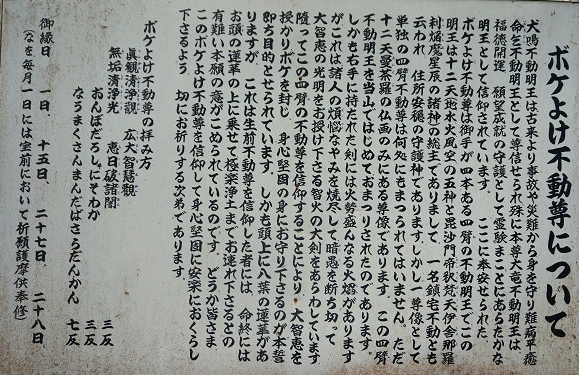 ボケよけ不動尊について
犬鳴不動明王は古来より事故や災難から身を守り難病平癒
命乞不動明王として尊信せられ殊に本尊大聖不動明王は
福徳開運 願望成就の守護として霊験まことにあらたかな
明王として信仰されています。ここに奉安せられた
ボケよけ不動尊は御手が四本ある四臂の不動明王でこの
明王は十二天地水火風空の五神と毘沙門帝釈梵天伊舎那羅
刹焔魔星辰の諸神の総主でありまして 一名鎮宅不動とも
云われ 住所安穏の守護神でありますしかし一尊像として
単独の四臂不動尊は何処にもまつられてはいません。ただ
十二天曼荼羅の仏画のみにある尊像であります。この四臂
不動明王を当山ではじめておまつりされたのであります。
しかも右手に持たれた剣には火勢盛んなる火焔があります
がこれは諸人の煩悩なやみを焼尽して、暗愚を断ち切って
大智恵の光明をお授け下さる智火の大剣をあらわしています
随ってこの四臂の不動尊を信仰することにより、大智恵を
授かりボケを封じ 身心堅固の身にお守り下さるのが本誓
即ち目的とせられています。しかも頭上に八葉の蓮華があ
りますが これは生前不動尊を信仰した者には 命終には
お頭の蓮華の上に乗せて極楽浄土までお連れ下さるとの
有難い本願の意がこめられているのです。どうか皆さま
このボケよけ不動尊を信仰して身心堅固に安楽におくらし
下さるよう 切にお祈りする次第であります。
ボケよけ不動尊の拝み方
真観清浄観 広大智慧観
無垢清浄光 慧日破諸闇 三反
おんぼだろしにそわか 三反
なうまくさまんまんだばさらだんかん 七反
御縁日 一日、十五日、二十七日 二十八日、
(なを毎月一日には宝前において祈願護摩供奉修)